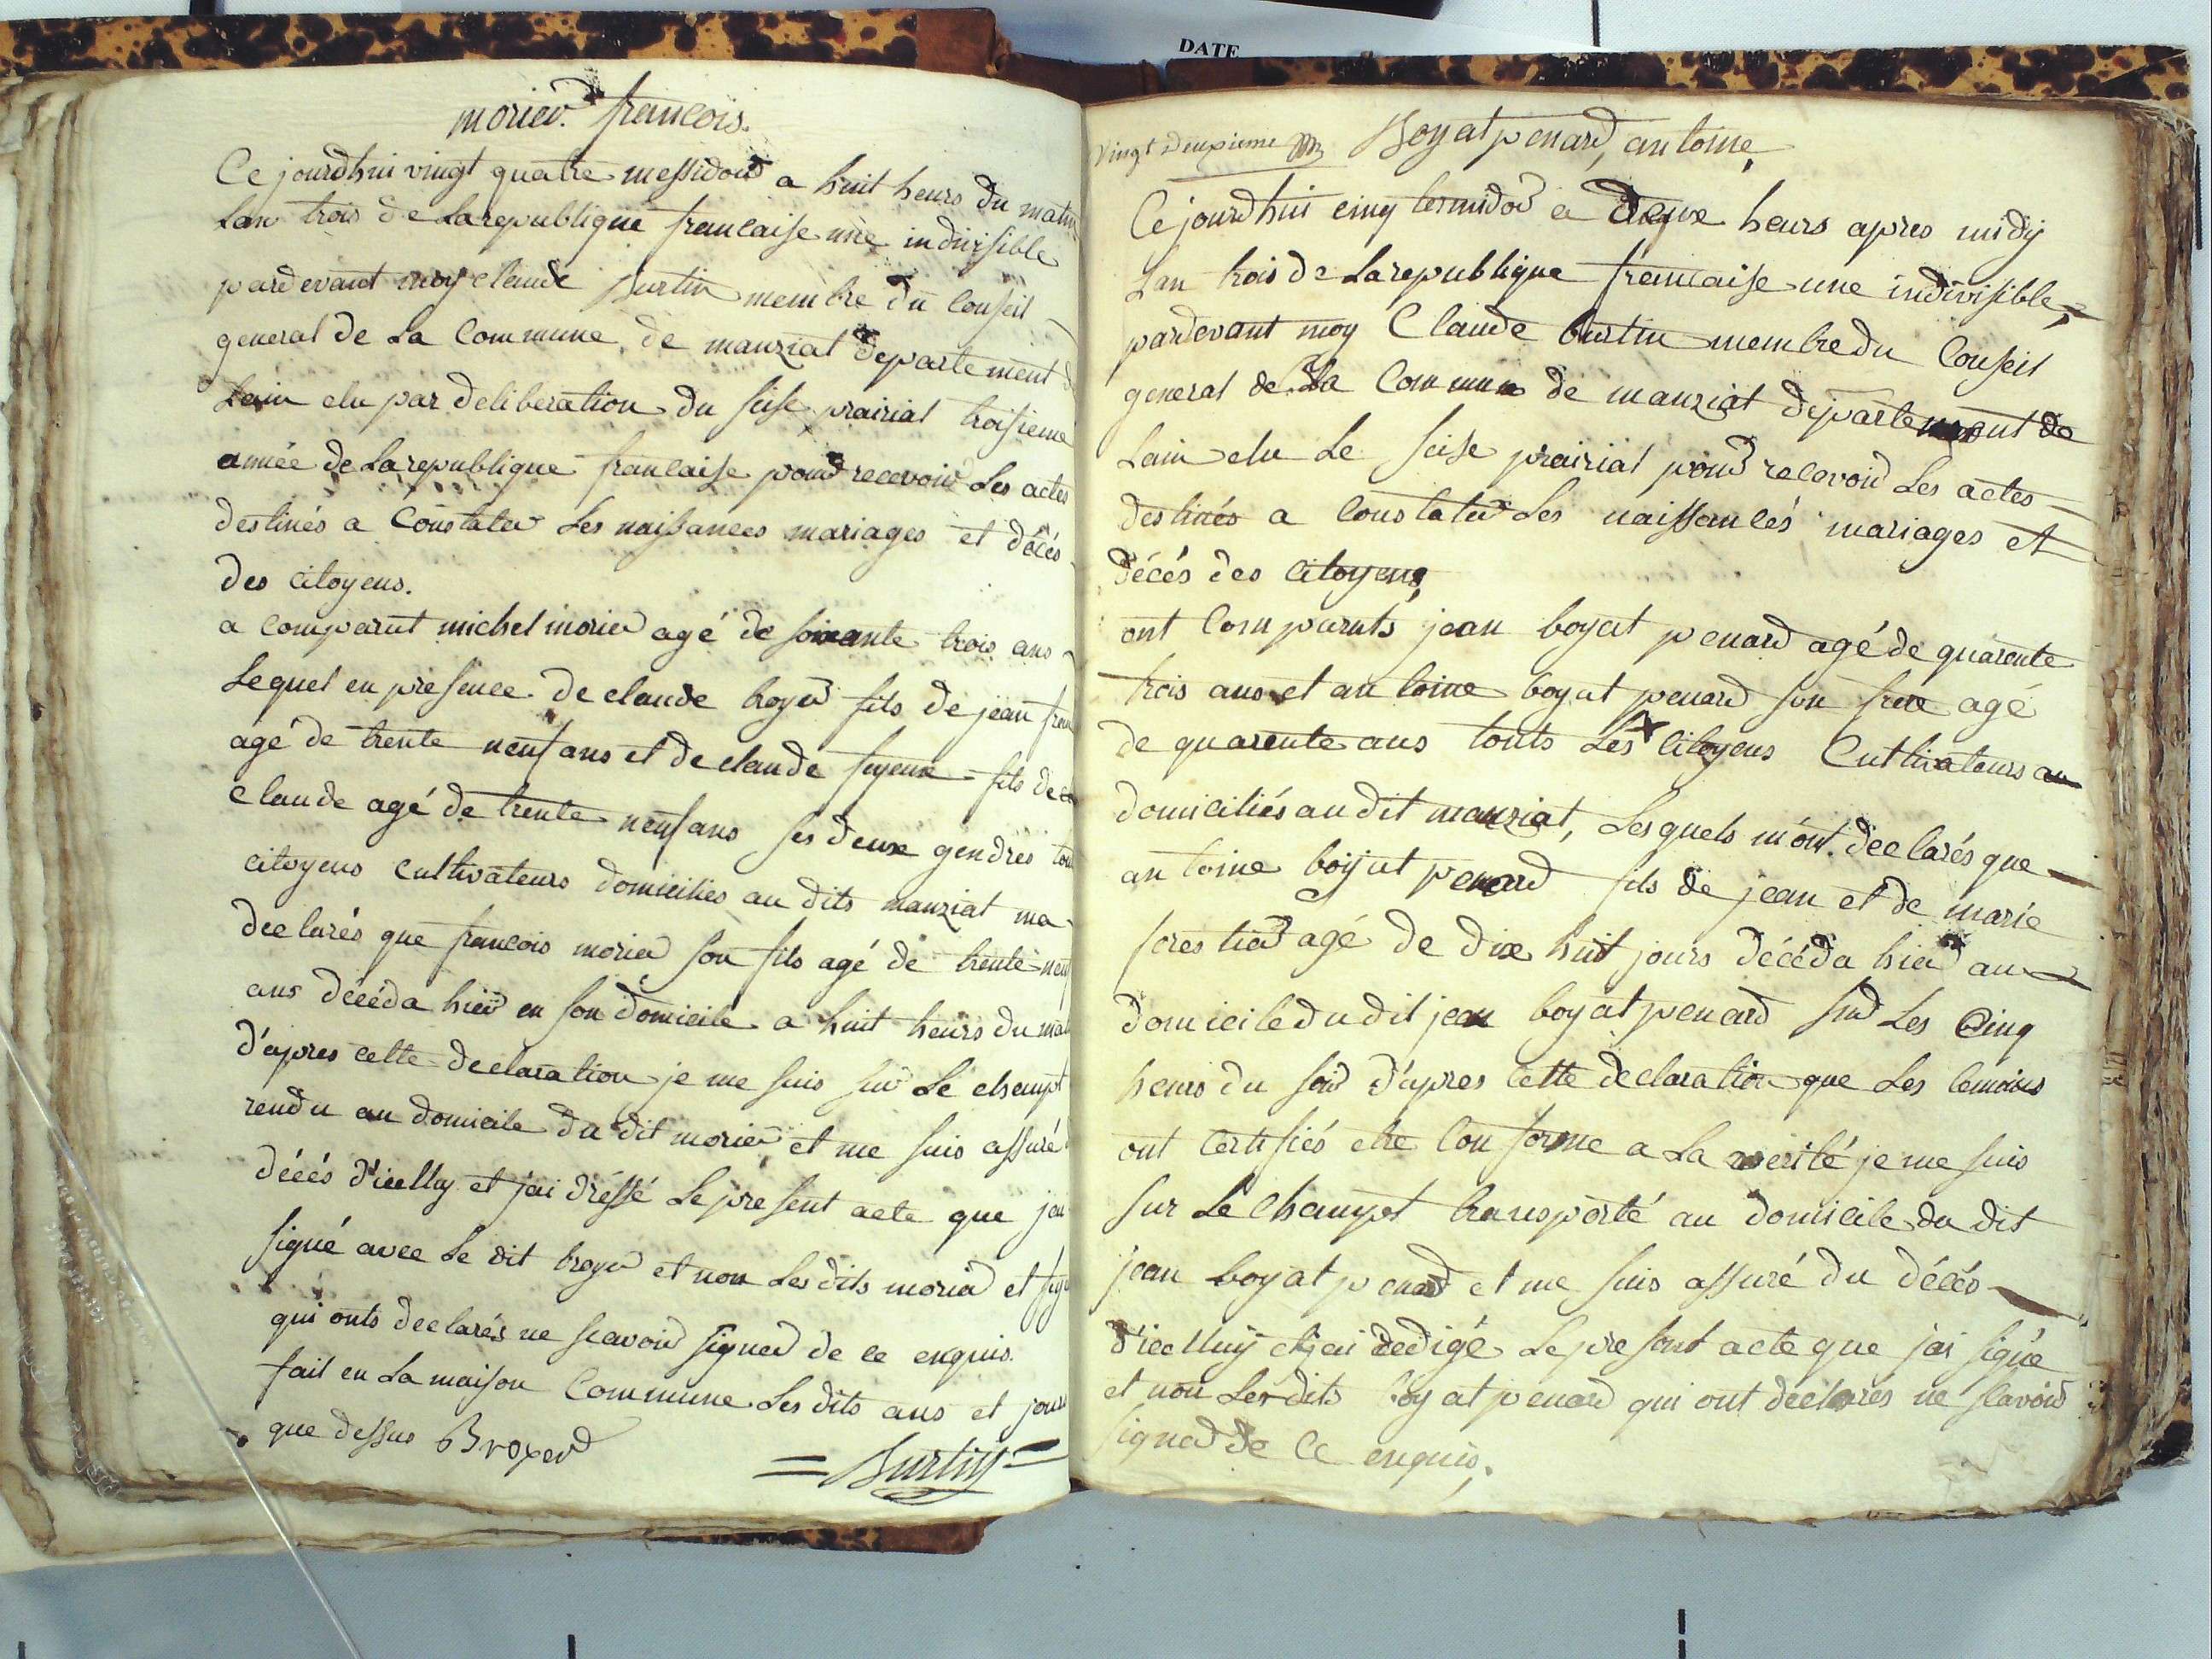 DATE
morier. francois.
Ce jourdhui vingt quatre messidor a huit heurs du matin
Lan trois de La republique francaise une indivisible
pardevant moy claude Burtin membre du Conseil
general de La Commune de manziat departement
Lain elu par deliberation du seise prairial troisieme
année de La republique francaise pour recevoir Les actes
destinés a Constater Les naissances mariages et décés
des citoyens.
a comparut michel morier agé de soixante trois ans
Lequel en presence de claude broyer fils de jean
agé de trente neuf ans et de claude feyeux fils de
claude agé de trente neuf ans ses deux gendres
citoyens cultivateurs domiciliés au dits manziat ma
declarés que francois morier son fils agé de trente neuf
ans décéda hier en son domicile a huit heurs du
d'apres cette declaration je me suis sur Le champt
rendu au domicile du dit morier et me suis assuré
décés d'icelluy et j'ai dréssé Le present acte que
signé avec Le dit broyer et non Les dits morier et
qui onts declarés ne scavoir signer de ce enquis.
fait en La maison Commune Les dits ans et jours
que dessus Broyer
= Burtin =
vingt deuxieme Boyat penard, antoine,
Ce jourdhui cinq termidor a deux heurs apres midy
Lan trois de La republique francaise une indivisible,
pardevant moy Claude burtin membre du Conseil
general de La Commune de manziat departement de
Lain elu Le seise prairial pour recevoir Les actes
destinés a Constater Les naissances mariages et
décés des citoyens,
ont Comparuts jean boyat penard agé de quarente
trois ans et antoine boyat penard son frere agé
de quarente ans touts Les citoyens Cultivateurs
domiciliés au dit manziat, Lesquels m'ont declarés que
antoine boyat penard fils de jean et de marie
forestier agé de dix huit jours décéda hier au
domicile du dit jean boyat penard sur Les Cinq
heurs du soir d'apres cette declaration que Les temoins
ont certifiés etre Conforme a La verité je me suis
sur Le Champt transporté au domicile du dit
jean boyat penard et me suis assuré du décés
d'icelluy et jai redigé Le present acte que jai signé
et non Les dits boyat penard qui ont declarés ne scavoir
signer de Ce enquis.